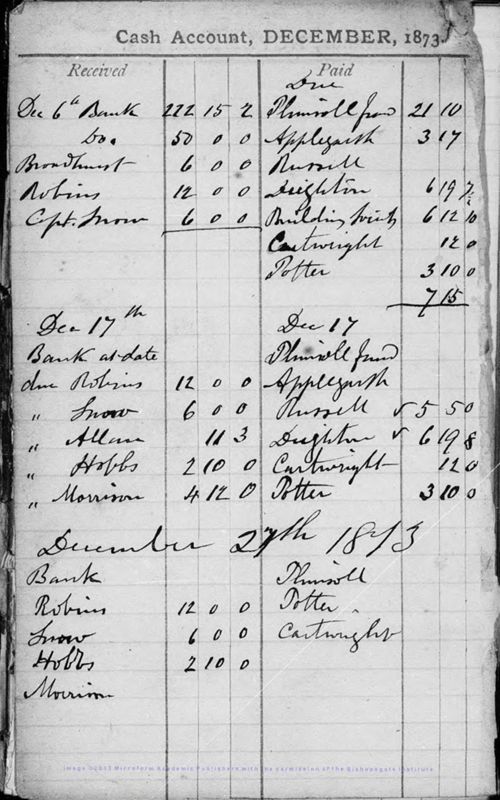 Cash Account, DECEMBER, 1873.
Received Paid
Due
Dec 6th Bank 222 15 2 Plimsoll fund 21 10
Do. 50 0 0 Applegarth 3 17
Broadhurst 6 0 0 Russell
Robins 12 0 0 Deighton 6 19 7½
Capt. Snow 6 0 0 Building Society 6 12 10
Cartwright 12 0
Potter 3 10 0
7 15
Dec 17th Dec 17
Bank at date Plimsoll fund
due Robins 12 0 0 Applegarth
" Snow 6 0 0 Russell ✓ 5 5 0
" Allan 11 3 Deighton ✓ 6 19 8
" Hobbs 2 10 0 Cartwright 12 0
" Morrison 4 12 0 Potter 3 10 0
December 27th 1873
Bank Plimsoll
Robins 12 0 0 Potter
Snow 6 0 0 Cartwright
Hobbs 2 10 0
Morrison
Image ©2003 Microform Academic Publishers with the permission of the Bishopsgate Institute